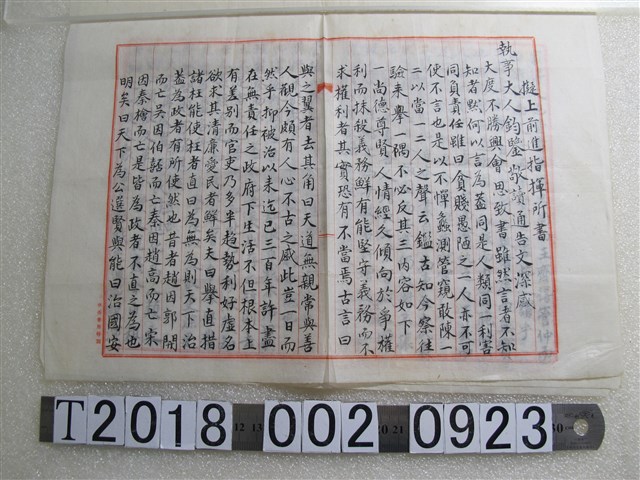 擬上前進指揮所書
執事大人鈞鑒敬讀通告文深感
大度不勝興會思致書雖然言者不知
知者默何以言為蓋同是人類同一利害
同負責任雖曰貧賤愚陋之一人亦不可
使不言也是以不憚蠡測管窺敢陳一
二以當一二人之聲云鑑古知今察往
驗來舉一隅不必反其三內容如下
一尚德尊賢人情經久傾向於爭權
利而抹殺義務鮮有能堅守義務而不
求權利者其實恐有不當焉古言曰
與之翼者去其角曰天道無親常與善
人觀今頗有人心不古之感此豈一日而
然乎抑被治以來迄已三百年許盡
在無責任之政府下生活不但根本上
有差別而官吏乃多半趨勢利好虛名
欲求其清廉愛民者鮮矣夫曰舉直措
諸枉能使枉者直曰為無為則天下治
蓋為政者有所使然也昔者趙因郭開
而亡吳因伯嚭而亡秦因趙高而亡宋
因秦檜而亡是皆為政者不直之為也
明矣曰天下為公選賢與能曰治國安
T2018 002 0923